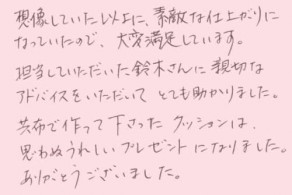 想像していた以上に、素敵な仕上がりに
なっていたので、大変満足しています。
担当していただいた鈴木さんに親切な
アドバイスをいただいてとても助かりました。
共布で作って下さったクッションは、
思わぬうれしいプレゼントになりました。
ありがとうございました。